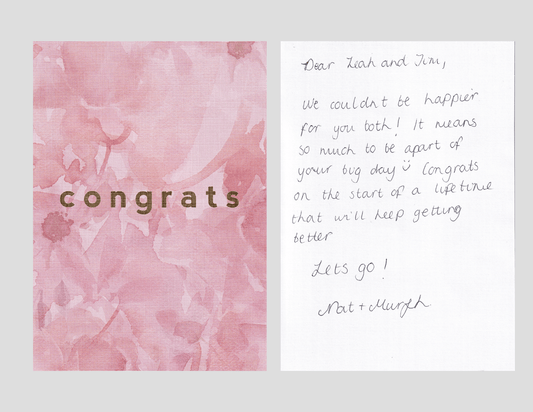 congrats
Dear Leah and Tim,
We couldnt be happier
for you both! It means
so much to be apart of
your big day Congrats
on the start of a lifetime
that will keep getting
better
Lets go!
Nat + Murph